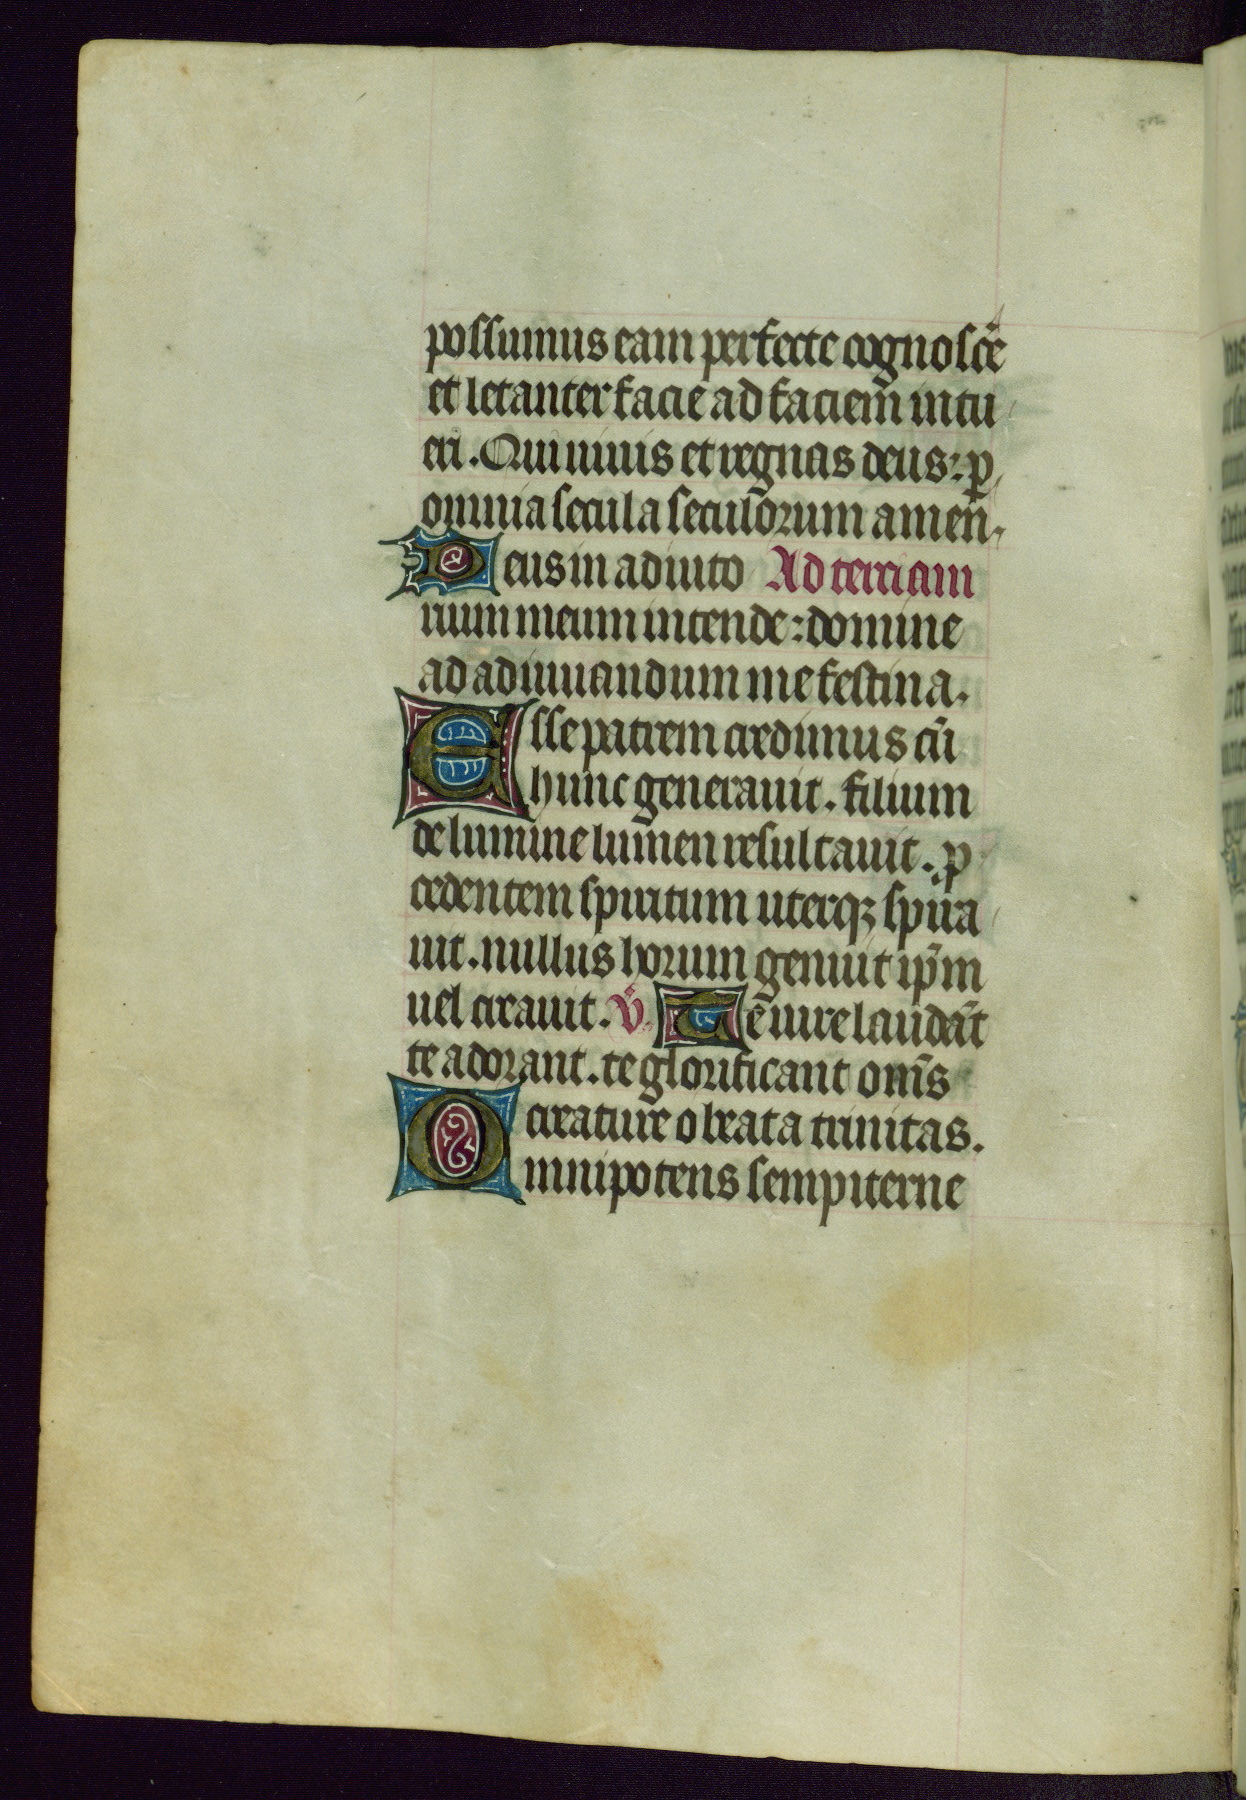 possumus eam perfecte cognoscē
et letanter facie ad faciem̄ intu
eri. Qui uiuis et regnas deus: p̱
omnia secula seculorum amen.
Deus in adiuto Ad terciam
rium meum intende: domine
ad adiuuandum me festina.
Esse patrem credimus cū
hunc generauit. filium
de lumine lumen resultauit. p
cedentem spiritum uterqꝫ spira
uit. nullus horum genuit ip̄m
uel creauit. V̄. Te iure laudāt
te adorant. te glorificant om̄s
creature o beata trinitas.
Omnipotens sempiterne